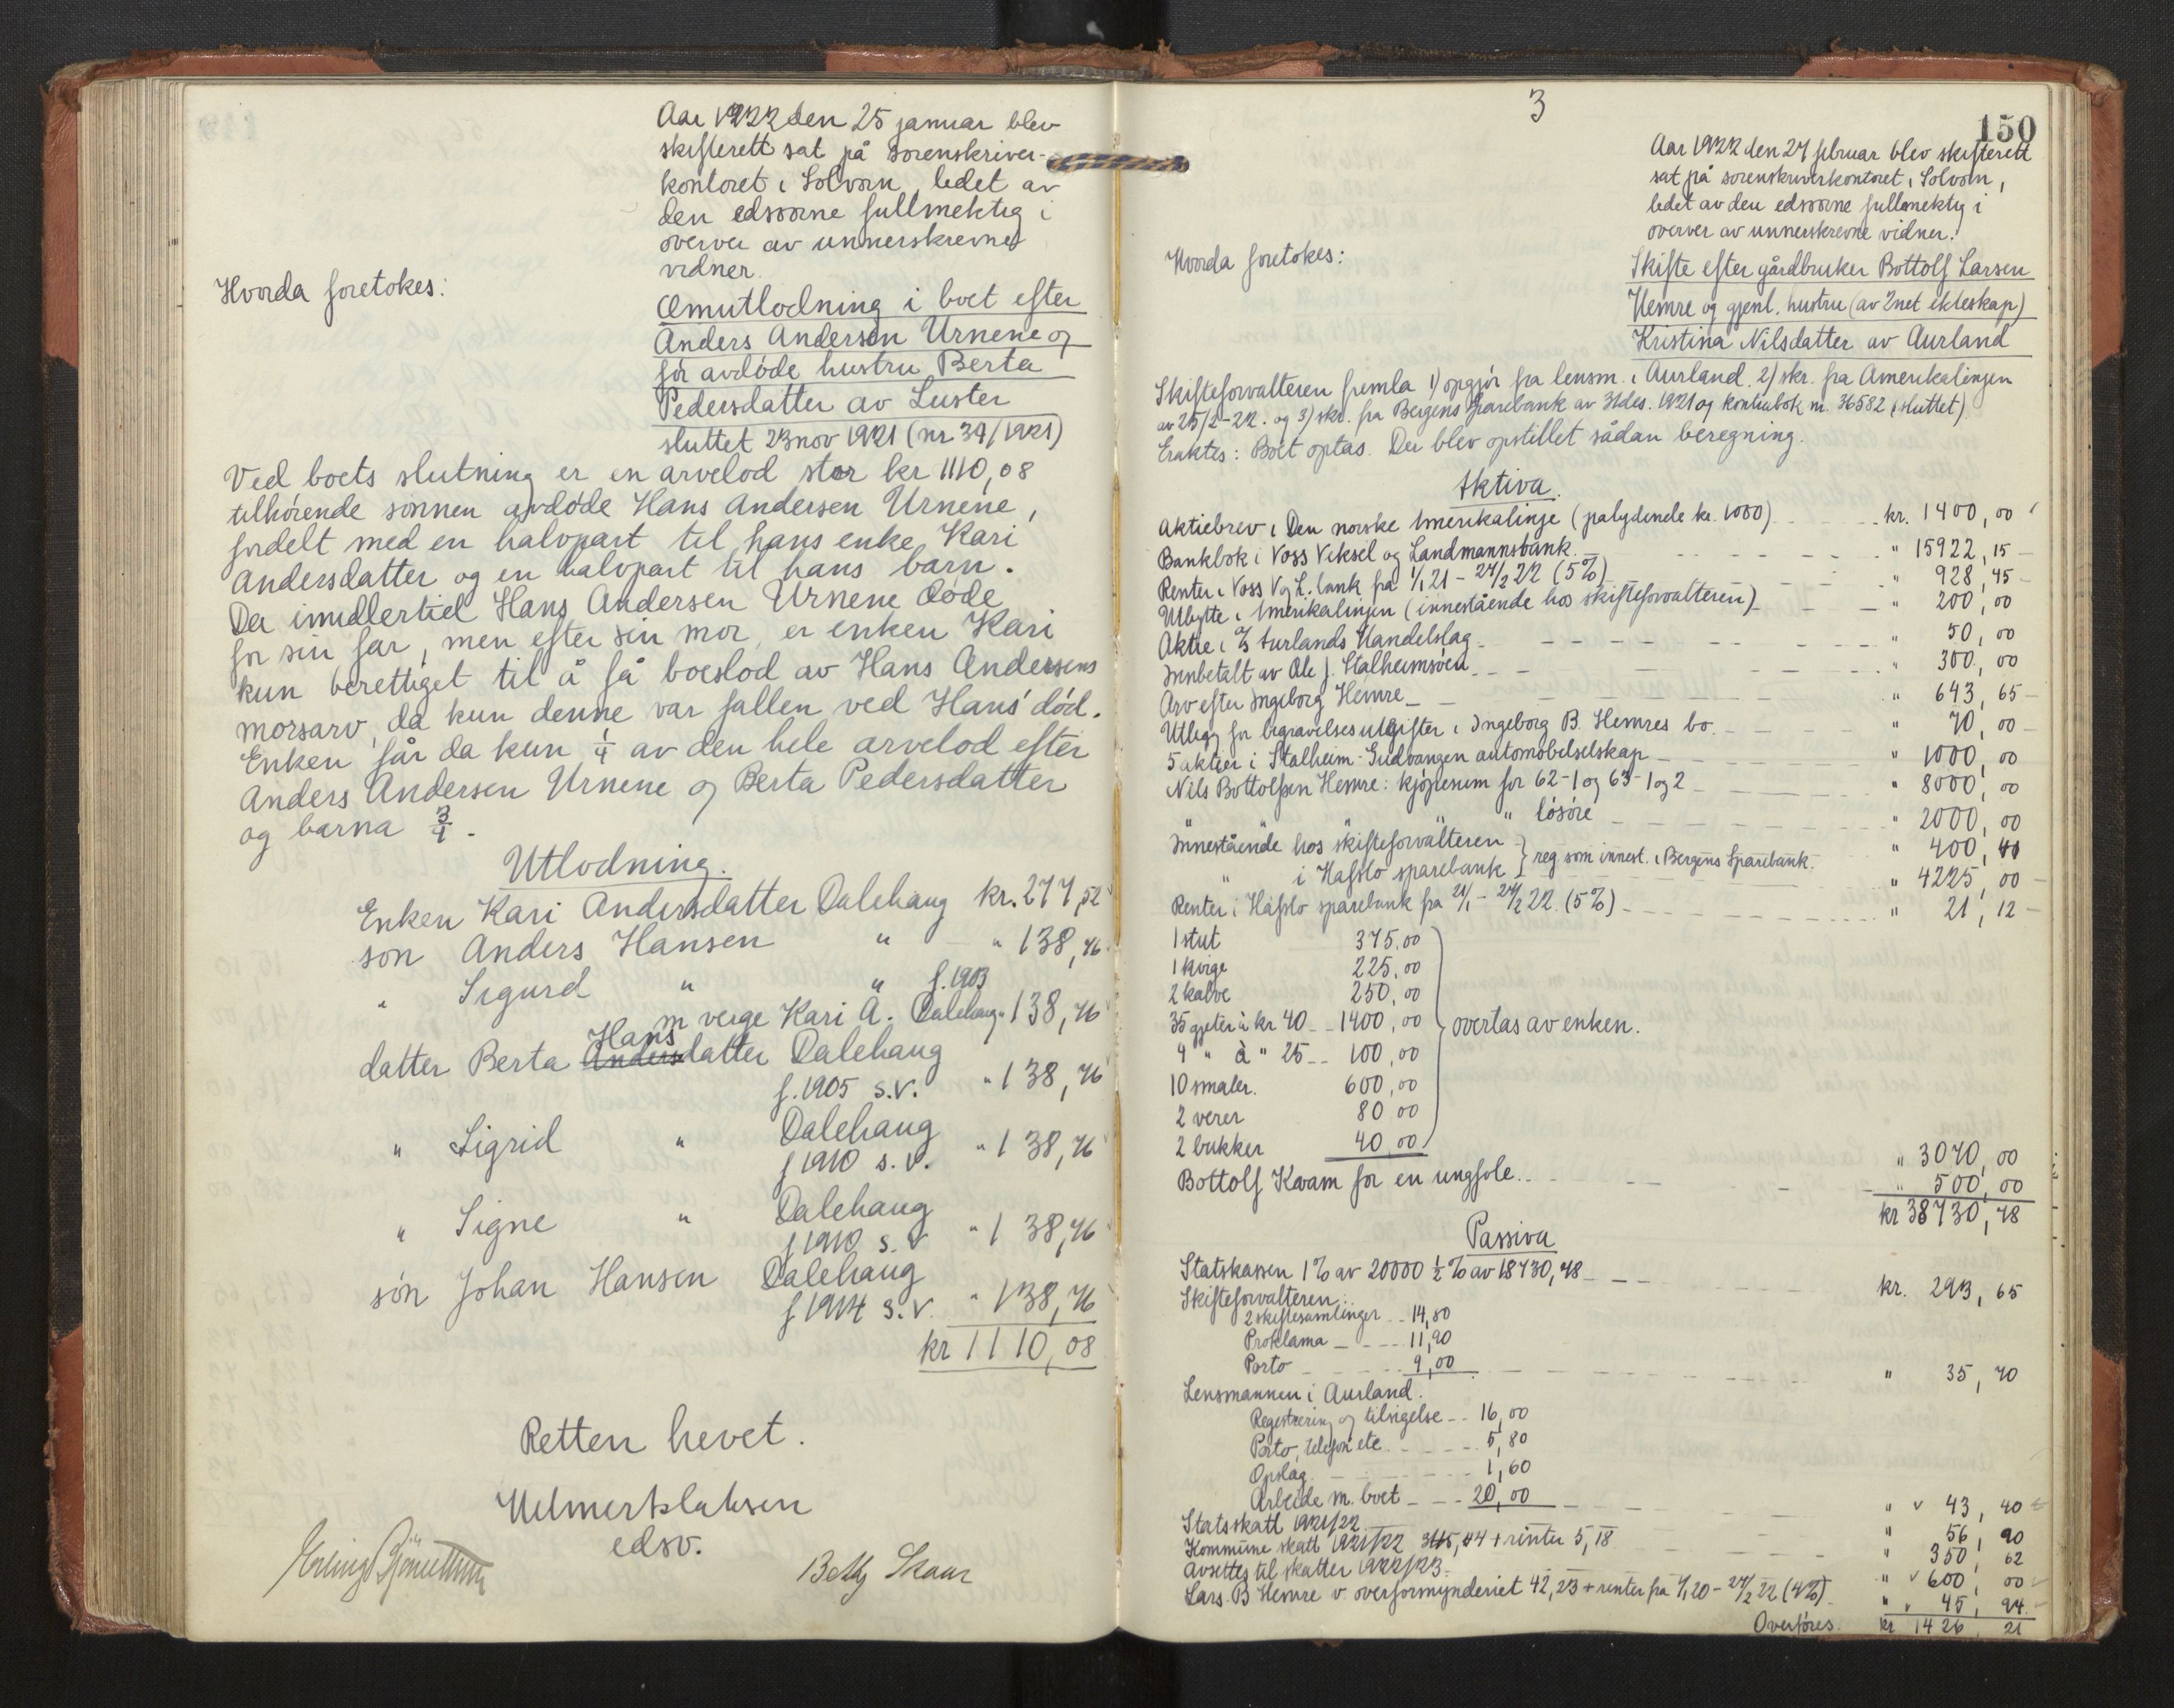 Aar 1922 den 25 januar blev
skifterett sat på sorenskriver-
kontoret i Solvorn, ledet av
den edsvorne fullmektig i
overver av unnerskrevne
vidner.
Hvorda foretokes:
Omutlodning i boet efter
Anders Andersen Urnene og
før avdøde hustru Berta
Pedersdatter av Luster
sluttet 23 nov 1921 (nr 34/1921)
Ved boets slutning er en arvelod stor kr 1110,08
tilhørende sønnen avdøde Hans Andersen Urnene,
fordelt med en halvpart til hans enke Kari
Andersdatter og en halvpart til hans barn.
Da imidlertid Hans Andersen Urnene døde
før sin far, men efter sin mor, er enken Kari
kun berettiget til å få boeslod av Hans Andersens
morsarv, da kun denne var fallen ved Hans' død.
Enken får da kun 1/4 av den hele arvelod efter
Anders Andersen Urnene og Berta Pedersdatter
og barna 3/4.
Utlodning.
Enken Kari Andersdatter Dalehaug kr. 277,52
søn Anders Hansen " " 138,76
" Sigurd " " f. 1903
m verge Kari A. Dalehaug " 138,76
Hans
datter Berta Andersdatter Dalehaug
f. 1905 s.v. " 138,76
" Sigrid " Dalehaug
f 1910 s.v. " 138,76
" Signe " Dalehaug
f 1910 s.v " 138,76
søn Johan Hansen Dalehaug
f 1914 s.v. " 138,76
kr 1110,08
Retten hevet.
edsv.
Betty Skaar
3
150
Aar 1922 den 27 februar blev skifterett
sat på sorenskriverkontoret i Solvorn,
ledet av den edsvorne fullmektig i
overver av unnerskrevne vidner.
Hvorda foretokes:
Skifte efter gårdbruker Bottolf Larsen
Hemre og gjenl. hustru (av 2net ekteskap)
Kristina Nilsdatter av Aurland
Skifteforvalteren fremla 1) opgjør fra lensm. i Aurland, 2) skr. fra Amerikalinjen
av 25/2-22. og 3) skr. fra Bergens Sparebank av 31 des. 1921 og kontrabok nr. 36582 (sluttet).
Eraktes: Boet optas. Der blev opstillet sådan beregning.
Aktiva.
Aktiebrev i Den norske Amerikalinje (palydende kr. 1000) kr. 1400,00
Bankbok i Voss Veksel og Landmannsbank " 15922,15
Renter i Voss V og L. bank fra 1/1 21 - 27/2 22 (5%) " 928,45
Utbytte i Amerikalinjen (innestående hos skifteforvalteren) " 200,00
Aktie i A/S Aurlands Handelslag " 50,00
Innbetalt av Ole J. Stalheimsøen " 300,00
Arv efter Ingeborg Hemre " 643,65
Utlegg for begravelsesutgifter i Ingeborg B. Hemres bo. " 70,00
5 aktier i Stalheim-Gudvangen automobilselskap " 1000,00
Nils Bottolfsen Hemre: kjøpesum for 62-1 og 63-1 og 2 " 8000,00
" " " løsøre " 2000,00
Innestående hos skifteforvalteren } reg som innest. i Bergens Sparebank. " 400,41
" i Hafslo sparebank " 4225,00
Renter i Hafslo sparebank fra 21/1 - 27/2 22. (5%) " 21,12
1 stut 375,00
1 kvige 225,00
2 kalve 250,00
35 gjeter à kr 40 1400,00 overtas av enken.
4 " à " 25 100,00
10 smaler. 600,00
2 verer 80,00
2 bukker 40,00
" 3070,00
Bottolf Kvam for en ungfole " 500,00
kr 38730,78
Passiva
Statskassen 1% av 20000 1/2% av 18730,78 kr. 293,65
Skifteforvalteren:
2 skiftesamlinger 14,80
Proklama 11,90
Porto 9,00 " 35,70
Lensmannen i Aurland.
Registrering og tilsigelse 16,00
Porto, telefon etc. 5,80
Opslag 1,60
Arbeide m. boet 20,00 " 43,40
Statsskatt 1921/22 " 56,90
Kommune skatt 1921/22 345,44 + renter 5,18 " 350,62
Avsettes til skatter 1922/23. " 600,00
Lars B Hemre v. overformynderiet 42,23 + renter fra 1/1 20 - 27/2 22 (4%) " 45,94
Overføres. kr 1426,21